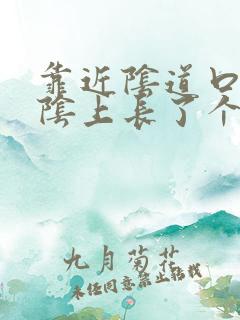 靠近阴道口
阴上长了个
九月菊花
未经同意禁止转载